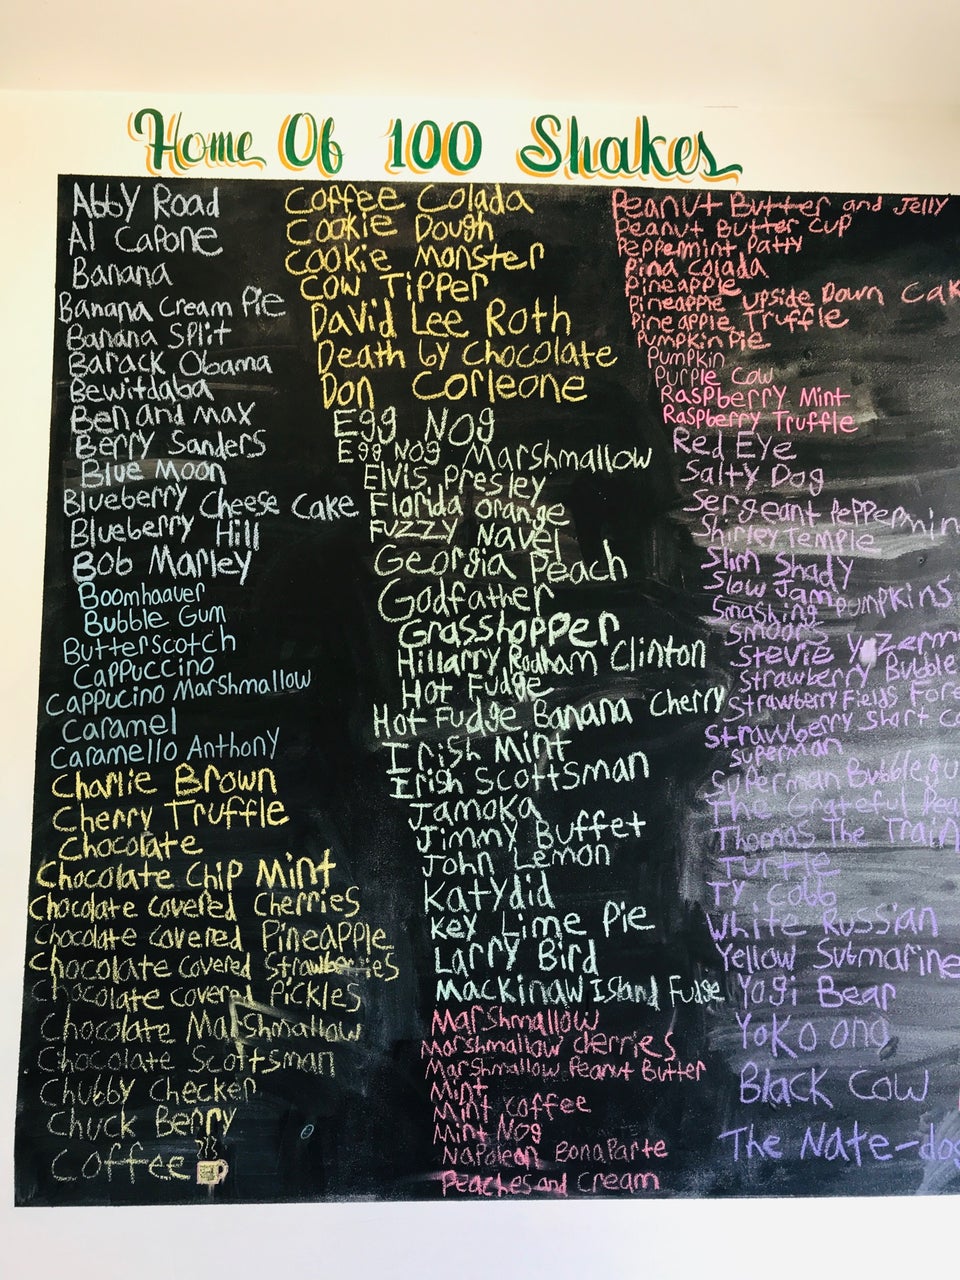 Home Of 100 Shakes
Abby Road
Al Capone
Banana
Banana Cream Pie
Banana Split
Barack Obama
Bewitdaba
Ben and Max
Berry Sanders
Blue Moon
Blueberry Cheese Cake
Blueberry Hill
Bob Marley
Boomhaauer
Bubble Gum
Butterscotch
Cappuccino
Cappucino Marshmallow
Caramel
Caramello Anthony
Charlie Brown
Cherry Truffle
Chocolate
Chocolate Chip Mint
Chocolate Covered Cherries
Chocolate Covered Pineapple
Chocolate Covered Strawberries
Chocolate Covered Pickles
Chocolate Marshmallow
Chocolate Scottsman
Chubby Checker
Chuck Berry
Coffee
Coffee Colada
Cookie Dough
Cookie Monster
Cow Tipper
David Lee Roth
Death by Chocolate
Don Corleone
Egg Nog
Egg Nog Marshmallow
Elvis Presley
Florida Orange
Fuzzy Navel
Georgia Peach
Godfather
Grasshopper
Hillarry Rodham Clinton
Hot Fudge
Hot Fudge Banana Cherry
Irish Mint
Irish Scottsman
Jamoka
Jimmy Buffet
John Lemon
Katydid
Key Lime Pie
Larry Bird
Mackinaw Island Fudge
Marshmallow
Marshmallow Cherries
Marshmallow Peanut Butter
Mint
Mint Coffee
Mint Nog
Napolean Bonaparte
Peaches and Cream
Peanut Butter and Jelly
Peanut Butter Cup
Peppermint Patty
Pina Colada
Pineapple
Pineapple Upside Down Cak
Pineapple Truffle
Pumpkin Pie
Pumpkin
Purple Cow
Raspberry Mint
Raspberry Truffle
Red Eye
Salty Dog
Sergeant Peppermin
Shirley Temple
Slim Shady
Slow Jam
Smashing Pumpkins
Smoors
Stevie Yzerm
Strawberry Bubble
Strawberry Fields Fore
Strawberry Short Ca
Superman
Superman Bubblegu
The Grateful Dea
Thomas The Train
Turtle
Ty Cobb
White Russian
Yellow Submarine
Yogi Bear
Yoko Ono
Black Cow
The Nate-dog